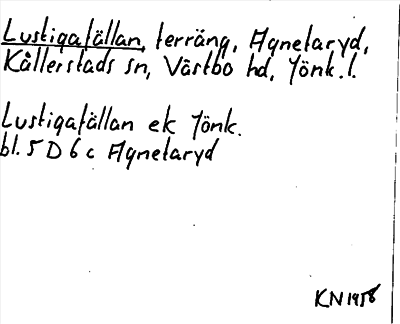 Lustigafällan, terräng, Agnetaryd,
Kållerstads sn, Västbo hd, Jönk. l.
Lustigafällan ek Jönk.
bl. 5 D 6 c Agnetaryd
KN 1958